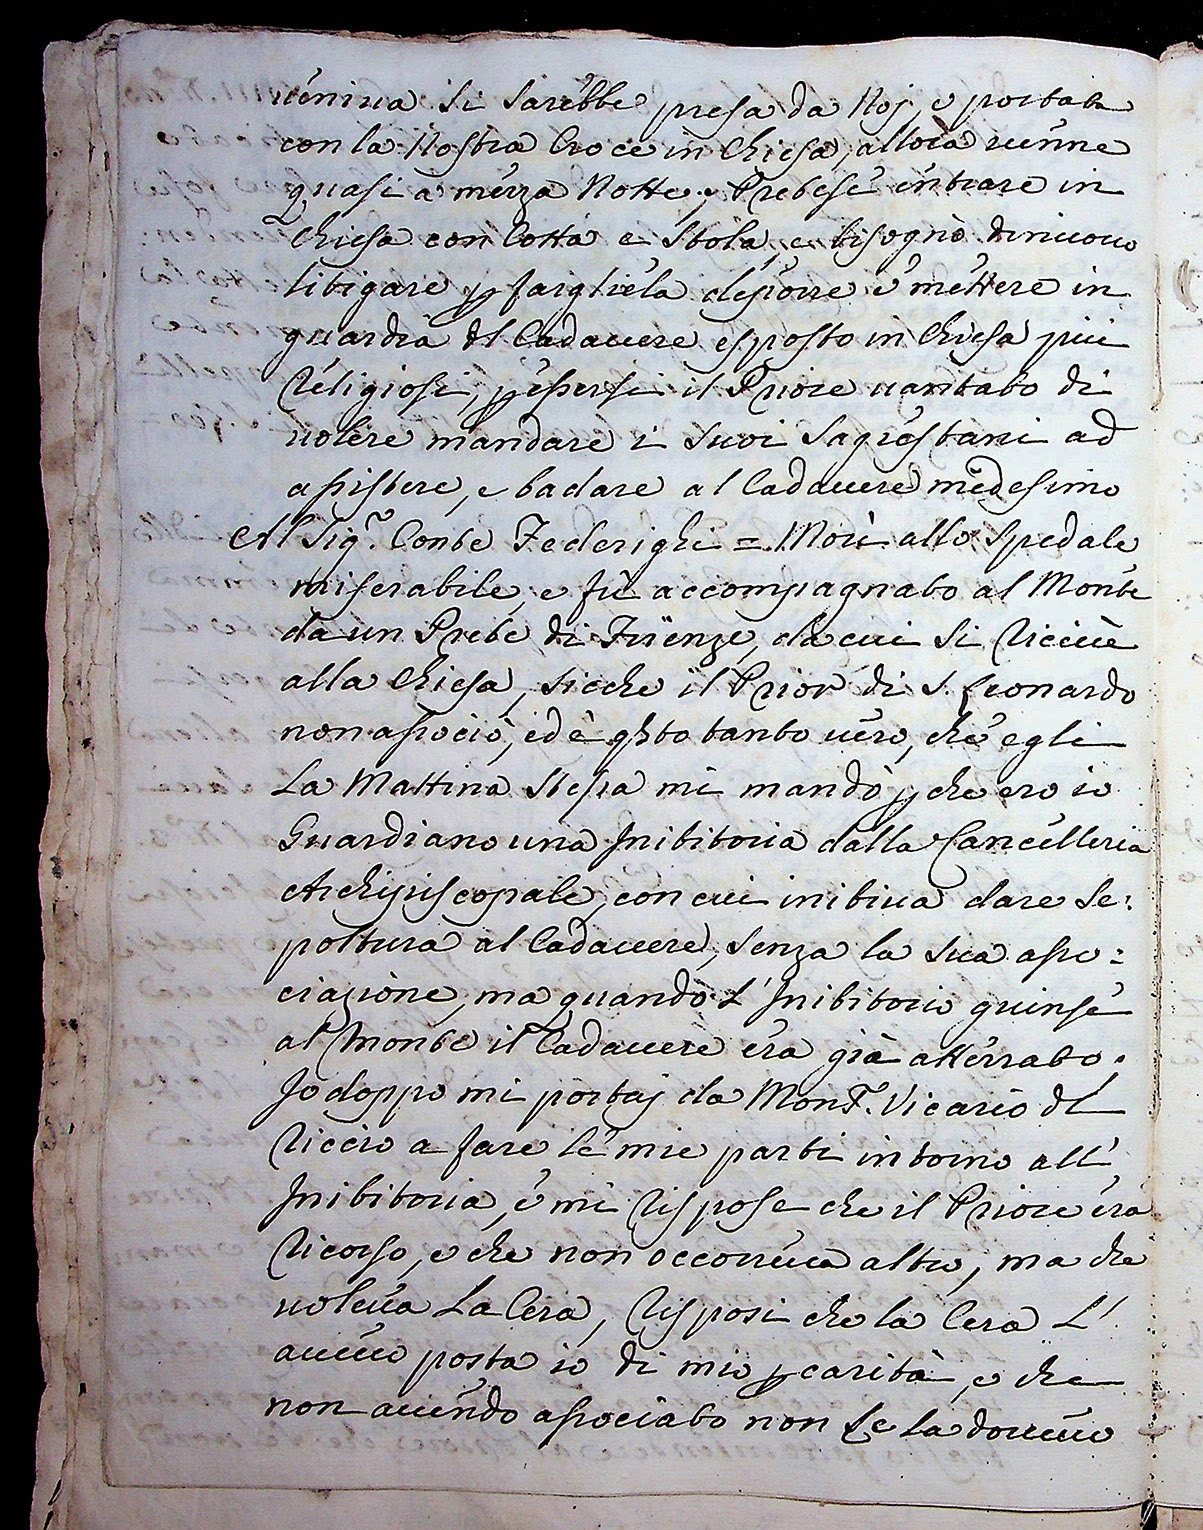 ueniua si sarebbe presa da Noj, e portata
con la Nostra Croce in Chiesa, allora uenne
quasi a mezza Notte, e Pretese entrare in
Chiesa con Cotta e Stola, e bisognò dinuouo
litigare p fargliela deporre e mettere in
guardia dl Cadauere esposto in Chiesa più
Religiosi, p essersi il Priore uantato di
uolere mandare i suoi Sagrestani ad
assistere, e badare al Cadauere medesimo
Al Sigr. Conte Federighi = Morì allo Spedale
miserabile, e fù accompagnato al Monte
da un Prete di Firenze, da cui si riceuè
alla Chiesa, sicche il Prior di S. Leonardo
non associò, ed è qsto tanto uero, che egli
La Mattina stessa mi mandò, pche ero io
Guardiano una Inibitoria dalla Cancelleria
Archipiscopale, con cui inibiua dare Se:
poltura al Cadauere, senza la sua asso:
ciazione, ma quando L' Inibitorio giunse
al Monte il Cadauere era già atterrato.
Io doppo mi portaj da Mons. Vicario dl
Riccio a fare le mie parti intorno all'
Inibitoria, e mi rispose che il Priore era
ricorso, e che non occorreua altro, ma che
uoleua La Cera, risposi che la Cera L'
aueuo posta io di mio p carità, e che
non auendo associato non se la doueuo